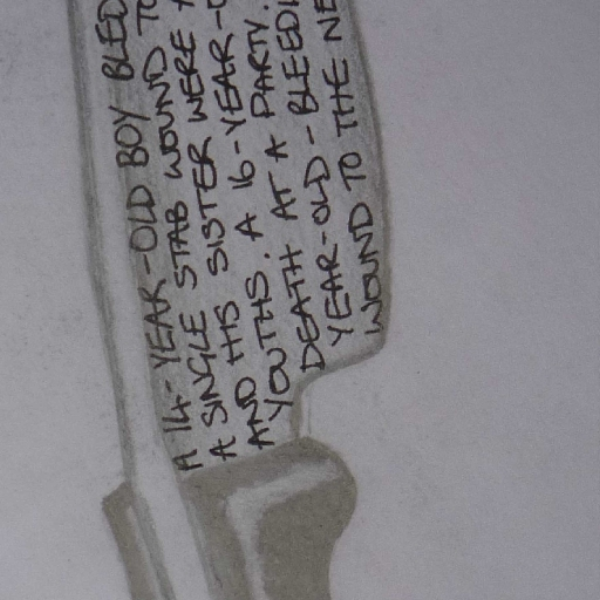 A 14-YEAR-OLD BOY BLED
A SINGLE STAB WOUND TO
AND HIS SISTER WERE
YOUTHS. A 16-YEAR-
DEATH AT A PARTY.
YEAR-OLD-BLEEDI
WOUND TO THE NE